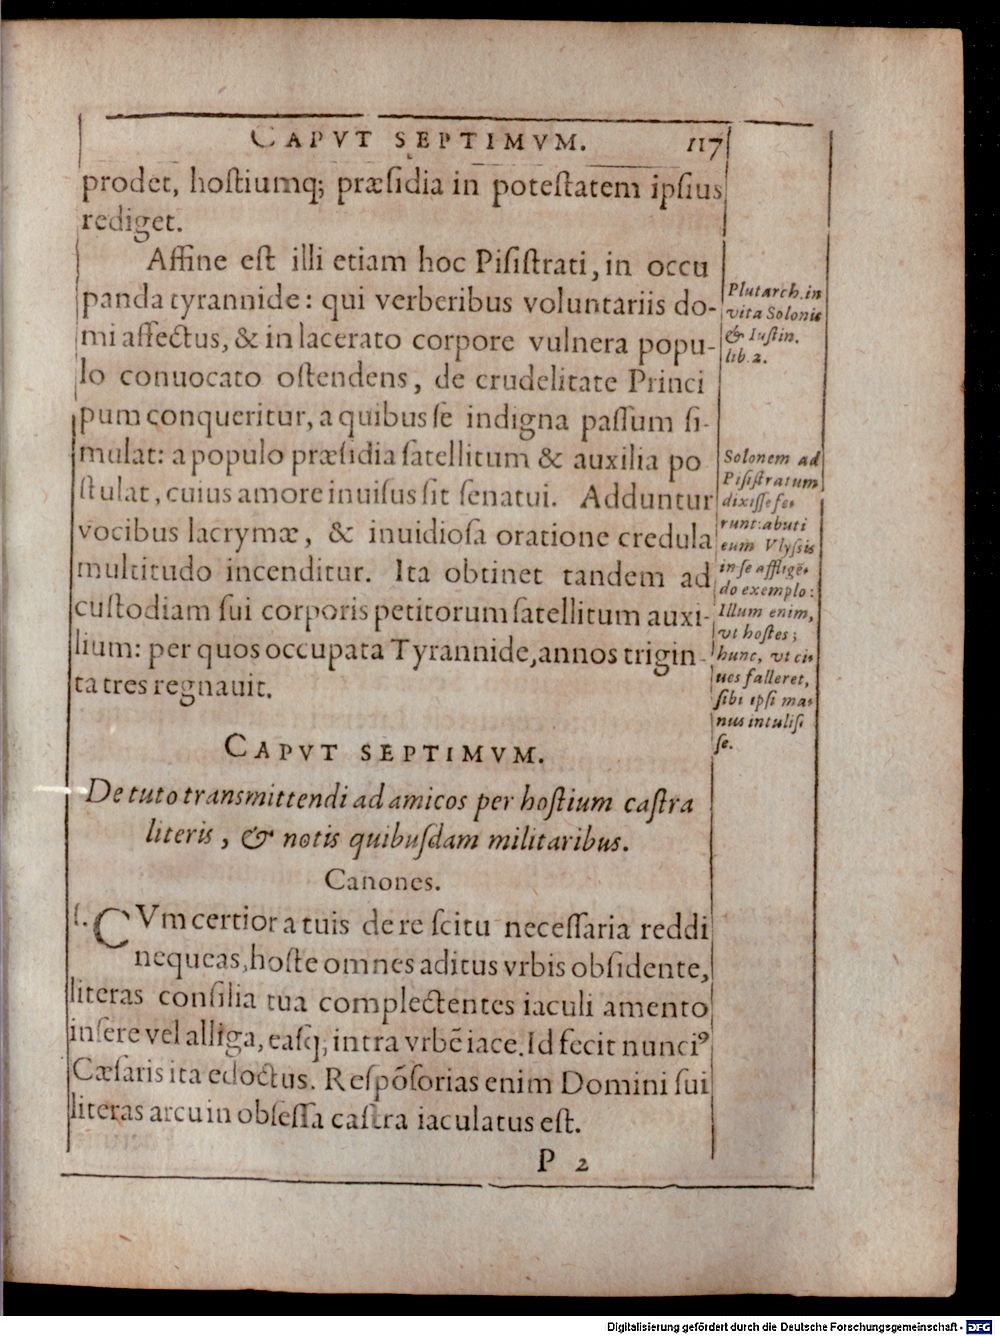 CAPVT SEPTIMVM. 117
prodet, hoſtiumq; præſidia in poteſtatem ipſius
rediget.
Affine eſt illi etiam hoc Piſiſtrati, in occu
panda tyrannide: qui verberibus voluntariis do-
mi affectus, & in lacerato corpore vulnera popu-
lo conuocato oſtendens, de crudelitate Princi
pum conqueritur, a quibus ſe indigna paſſum ſi-
mulat: a populo præſidia ſatellitum & auxilia po
ſtulat, cuius amore inuiſus ſit ſenatui. Adduntur
vocibus lacrymæ, & inuidioſa oratione credula
multitudo incenditur. Ita obtinet tandem ad
cuſtodiam ſui corporis petitorum ſatellitum auxi-
lium: per quos occupata Tyrannide, annos trigin-
ta tres regnauit.
Plutarch. in
vita Solonis
& Iuſtin.
lib. 2.
Solonem ad
Piſiſtratum
dixiſſe fe-
runt: abuti
eum Vlyſsis
in ſe affligē-
do exemplo:
Illum enim,
vt hoſtes;
hunc, vt ci-
ues falleret,
ſibi ipſi ma-
nus intuliſ
ſe.
CAPVT SEPTIMVM.
De tuto transmittendi ad amicos per hoſtium caſtra
literis, & notis quibuſdam militaribus.
Canones.
I. CVm certior a tuis de re ſcitu neceſſaria reddi
nequeas, hoſte omnes aditus vrbis obſidente,
literas conſilia tua complectentes iaculi amento
inſere vel alliga, eaſq; intra vrbē iace. Id fecit nunciꝰ
Cæſaris ita edoctus. Reſpōſorias enim Domini ſui
literas arcu in obſeſſa caſtra iaculatus eſt.
P 2
Digitalisierung gefördert durch die Deutsche Forschungsgemeinschaft - DFG